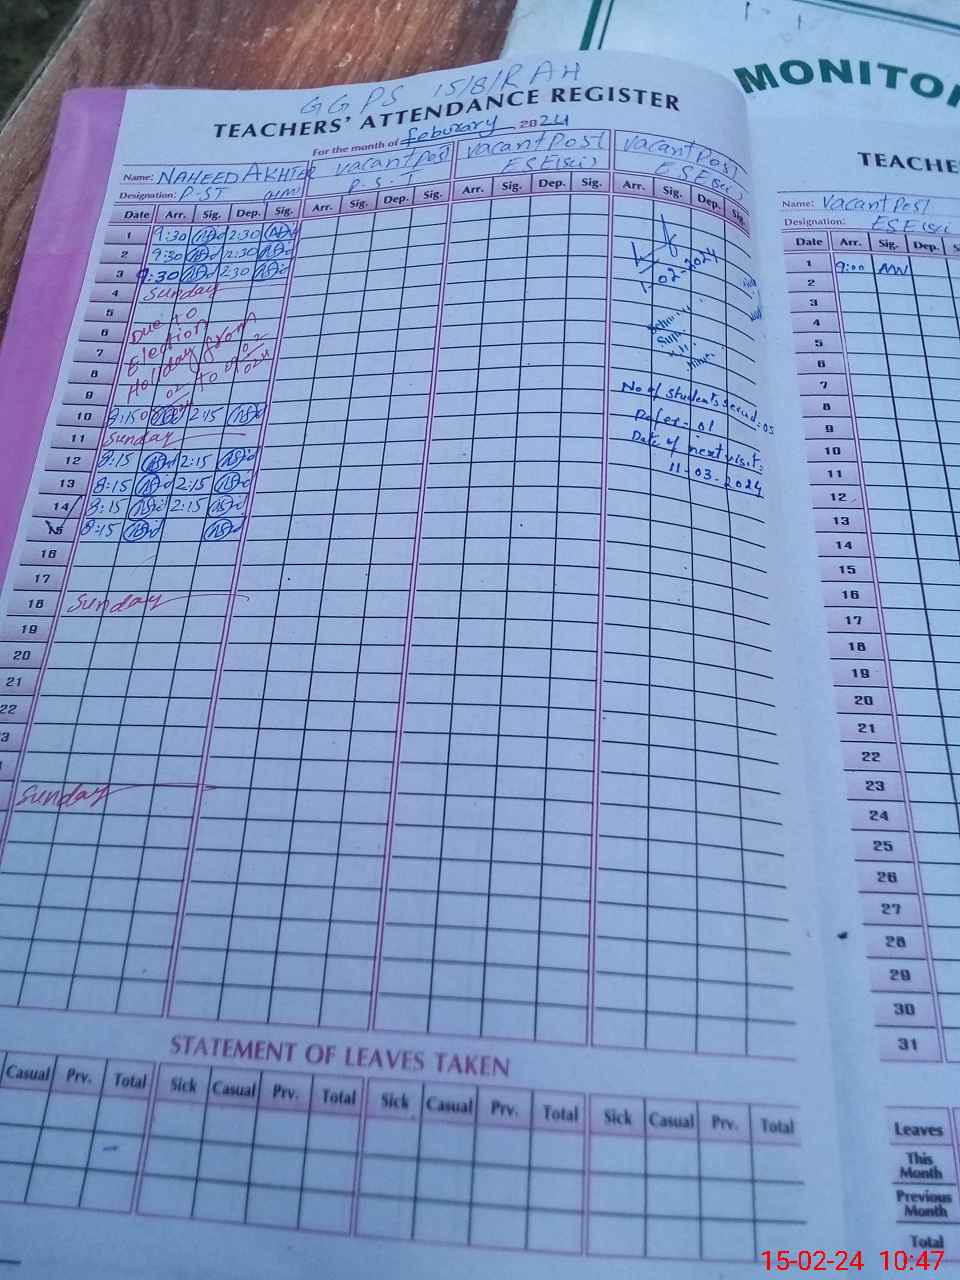 MONITOR
GGPS 15/8/R AH
TEACHERS' ATTENDANCE REGISTER
For the month of feburary 2024
Name: NAHEED AKHTER vacant Post vacant Post vacant Post
Designation: P-ST HM P.S.T ESE(sci) ESE(sci)
Date Arr. Sig. Dep. Sig. Arr. Sig. Dep. Sig. Arr. Sig. Dep. Sig. Arr. Sig. Dep. Sig.
1 9:30 2:30
2 9:30 2:30
3 9:30 2:30
4 Sunday
5
6 Due to
7 Election
8 Holiday from
9 02 to 02
10 8:15 2:15
11 Sunday
12 8:15 2:15
13 8:15 2:15
14 8:15 2:15
15 8:15
16
17
18 Sunday
19
20
21
22
3
Sunday
1-02-2024
No of students
Refer - 01
Date of next visit:
11-03-2024
STATEMENT OF LEAVES TAKEN
Casual Prv. Total Sick Casual Prv. Total Sick Casual Prv. Total Sick Casual Prv. Total
TEACHE
Name: Vacant Post
Designation: ESE(sci)
Date Arr. Sig. Dep. S
1 9:00
2
3
4
5
6
7
8
9
10
11
12
13
14
15
16
17
18
19
20
21
22
23
24
25
26
27
28
29
30
31
Leaves
This
Month
Previous
Month
Total
15-02-24 10:47